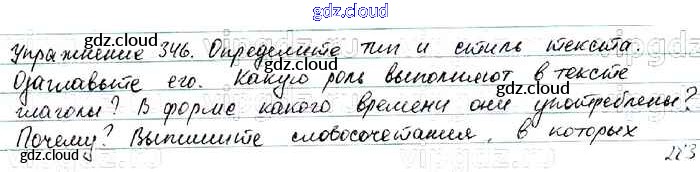 gdz.cloud
Упражнение 346. Определите тип и стиль текста.
Озаглавьте его. Какую роль выполняют в тексте
глаголы? В форме какого времени они употреблены?
Почему? Выпишите словосочетания, в которых
gdz.cloud
gdz.cloud
gdz.cloud
gdz.cloud
gdz.cloud
gdz.cloud
223